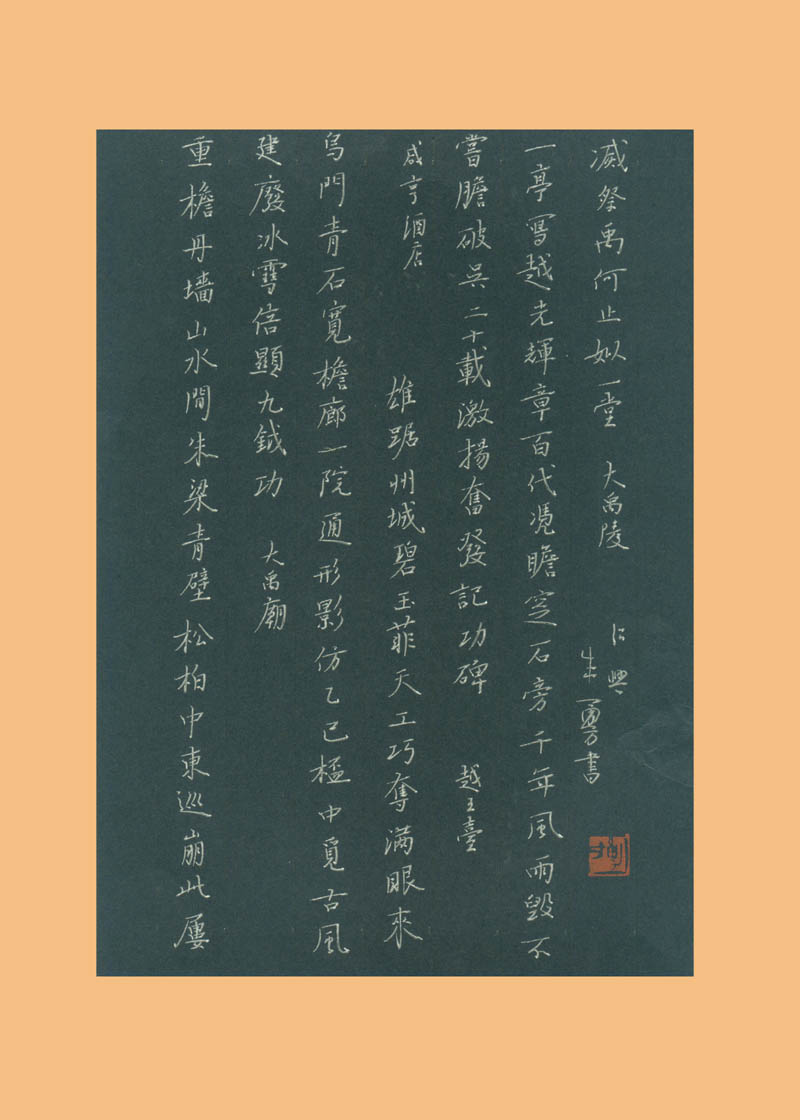 重檐丹墻山水間朱梁青壁松柏中東巡崩此屢
建廢冰雪信顯九鉞功 大禹廟
烏門青石寬檐廊一院通形影仿乙己楹中覓古風
咸亨酒店 雄踞州城碧玉菲天工巧奪滿眼來
嘗膽破吳二十載激揚奮發記功碑 越王臺
一亭寫越光輝章百代憑瞻窆石旁千年風雨毀不
滅祭禹何止姒一堂 大禹陵 仁興
朱勇書